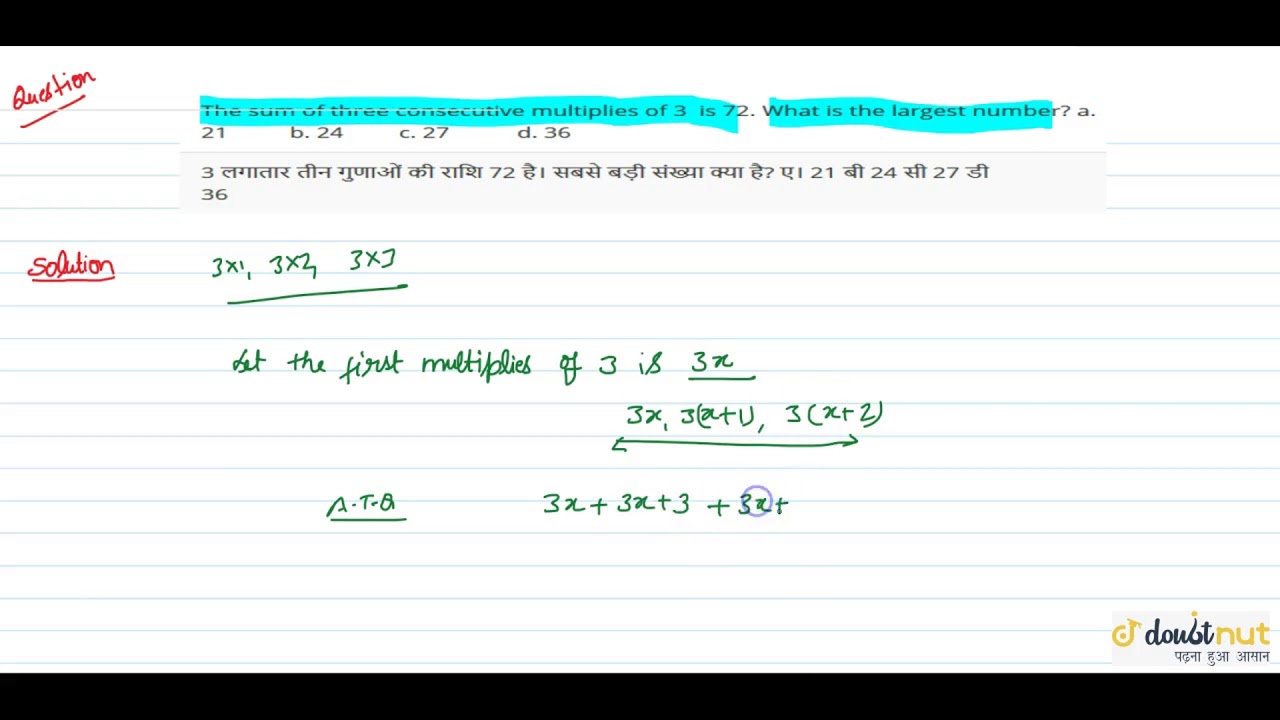 Question
The sum of three consecutive multiplies of 3 is 72. What is the largest number? a.
21 b. 24 c. 27 d. 36
3 लगातार तीन गुणाओं की राशि 72 है। सबसे बड़ी संख्या क्या है? ए। 21 बी 24 सी 27 डी
36
Solution 3×1, 3×2, 3×3
Let the first multiplies of 3 is 3x
3x, 3(x+1), 3(x+2)
A.T.Q 3x + 3x + 3 + 3x +
doubtnut
पढ़ना हुआ आसान